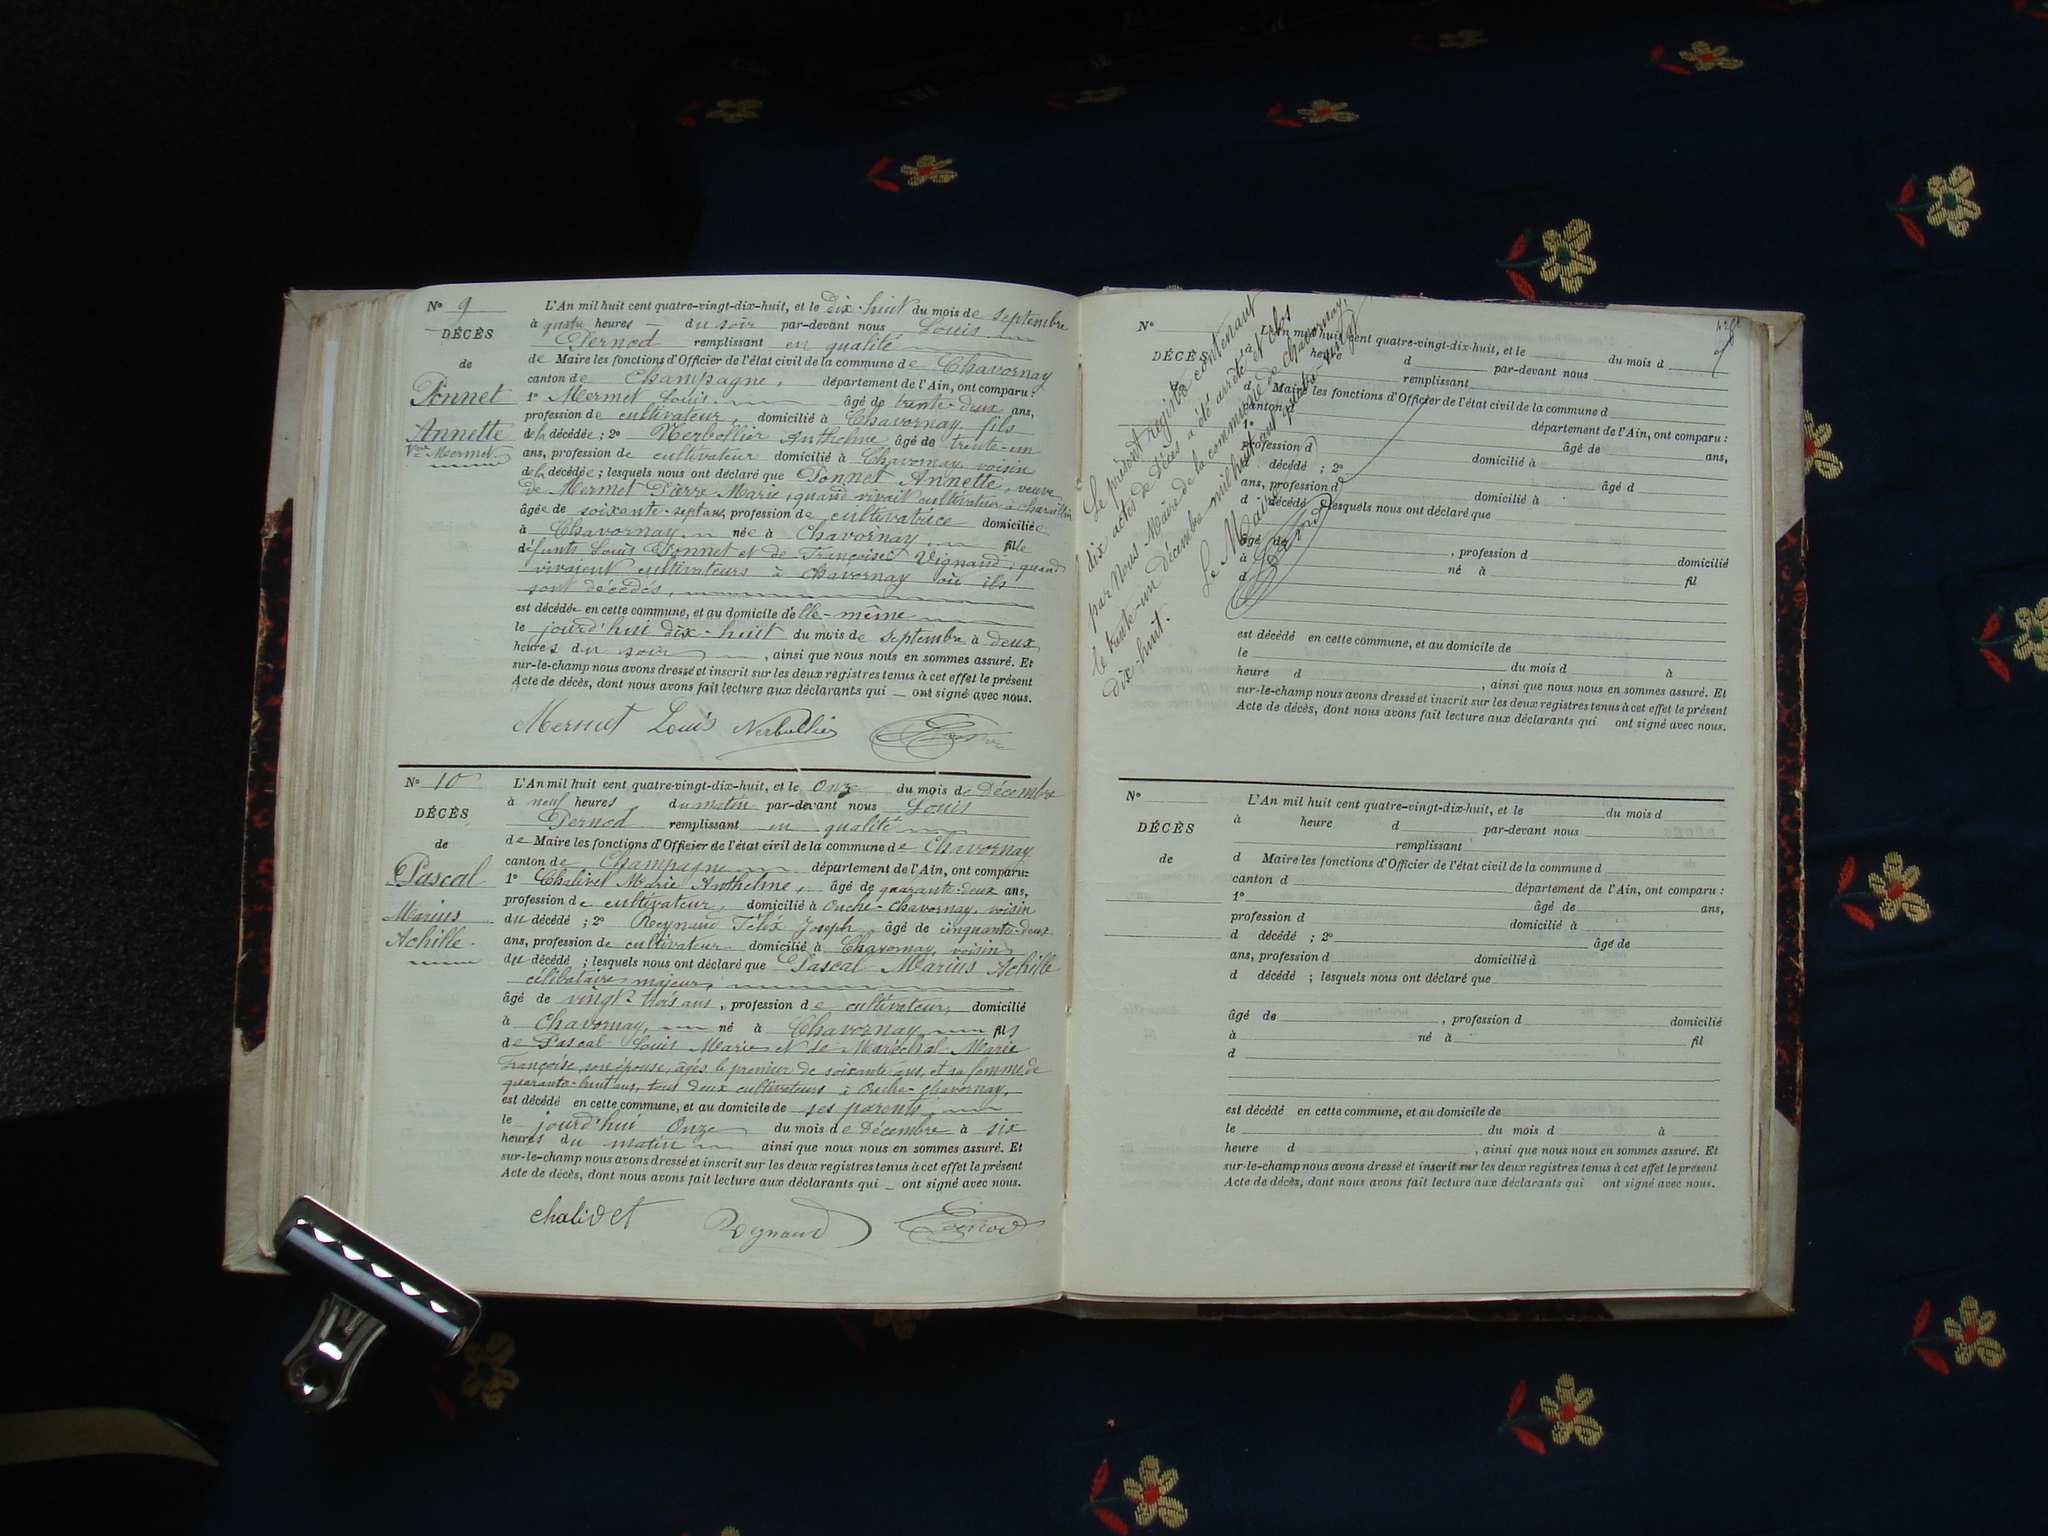 N° 9
DÉCÈS
de
Ponnet
Annette
Vve Mermet
L'An mil huit cent quatre-vingt-dix-huit, et le dix-huit du mois de septembre
à quatre heures du soir par-devant nous Louis
Pernod remplissant en qualité
de Maire les fonctions d'Officier de l'état civil de la commune de Chavornay
canton de Champagne, département de l'Ain, ont comparu :
1° Mermet Louis âgé de trente-deux ans,
profession de cultivateur, domicilié à Chavornay, fils
de la décédée ; 2° Nerbollier Anthelme âgé de trente-un
ans, profession de cultivateur domicilié à Chavornay, voisin
de la décédée ; lesquels nous ont déclaré que Ponnet Annette, veuve
de Mermet Pierre Marie, quand vivait cultivateur à
âgée de soixante-sept ans, profession de cultivatrice domiciliée
à Chavornay née à Chavornay fille
défunts Louis Ponnet et de Françoise Vignand, quand
vivaient cultivateurs à Chavornay où ils
sont décédés,
est décédée en cette commune, et au domicile d'elle-même
le jourd'hui dix-huit du mois de septembre à deux
heures du soir, ainsi que nous nous en sommes assuré. Et
sur-le-champ nous avons dressé et inscrit sur les deux registres tenus à cet effet le présent
Acte de décès, dont nous avons fait lecture aux déclarants qui ont signé avec nous.
Mermet Louis Nerbollier Pernod
N° 10
DÉCÈS
de
Pascal
Marius
Achille
L'An mil huit cent quatre-vingt-dix-huit, et le Onze du mois de Décembre
à neuf heures du matin par-devant nous Louis
Pernod remplissant en qualité
de Maire les fonctions d'Officier de l'état civil de la commune de Chavornay
canton de Champagne département de l'Ain, ont comparu:
1° Chalivet Marie Anthelme, âgé de quarante-deux ans,
profession de cultivateur, domicilié à Ouche-Chavornay, voisin
du décédé ; 2° Reynaud Félix Joseph âgé de cinquante-deux
ans, profession de cultivateur domicilié à Chavornay, voisin
du décédé ; lesquels nous ont déclaré que Pascal Marius Achille
célibataire majeur,
âgé de vingt-trois ans, profession de cultivateur, domicilié
à Chavornay, né à Chavornay, fils
de Pascal Louis Marie et de Maréchal Marie
Françoise, son épouse, âgés le premier de soixante ans, et sa femme de
quarante-huit ans, tous deux cultivateurs à Ouche-Chavornay,
est décédé en cette commune, et au domicile de ses parents,
le jourd'hui Onze du mois de Décembre à six
heures du matin ainsi que nous nous en sommes assuré. Et
sur-le-champ nous avons dressé et inscrit sur les deux registres tenus à cet effet le présent
Acte de décès, dont nous avons fait lecture aux déclarants qui ont signé avec nous.
Chalivet Reynaud Pernod
Le présent registre contenant
dix actes de Décès a été arrêté et clos
par Nous Maire de la commune de Chavornay,
le trente-un décembre mil huit cent quatre-vingt
dix-huit.
Le Maire
Pernod
N°
DÉCÈS
de
L'An mil huit cent quatre-vingt-dix-huit, et le du mois d
à heure d par-devant nous
remplissant
d Maire les fonctions d'Officier de l'état civil de la commune d
canton d département de l'Ain, ont comparu :
1° âgé de ans,
profession d domicilié à
d décédé ; 2° âgé d
ans, profession d domicilié à
d décédé lesquels nous ont déclaré que
âgé de , profession d domicilié
à né à fil
d
est décédé en cette commune, et au domicile de
le du mois d à
heure d , ainsi que nous nous en sommes assuré. Et
sur-le-champ nous avons dressé et inscrit sur les deux registres tenus à cet effet le présent
Acte de décès, dont nous avons fait lecture aux déclarants qui ont signé avec nous.
N°
DÉCÈS
de
L'An mil huit cent quatre-vingt-dix-huit, et le du mois d
à heure d par-devant nous
remplissant
d Maire les fonctions d'Officier de l'état civil de la commune d
canton d département de l'Ain, ont comparu :
1° âgé de ans,
profession d domicilié à
d décédé ; 2° âgé de
ans, profession d domicilié à
d décédé ; lesquels nous ont déclaré que
âgé de , profession d domicilié
à né à fil
d
est décédé en cette commune, et au domicile de
le du mois d à
heure d , ainsi que nous nous en sommes assuré. Et
sur-le-champ nous avons dressé et inscrit sur les deux registres tenus à cet effet le présent
Acte de décès, dont nous avons fait lecture aux déclarants qui ont signé avec nous.